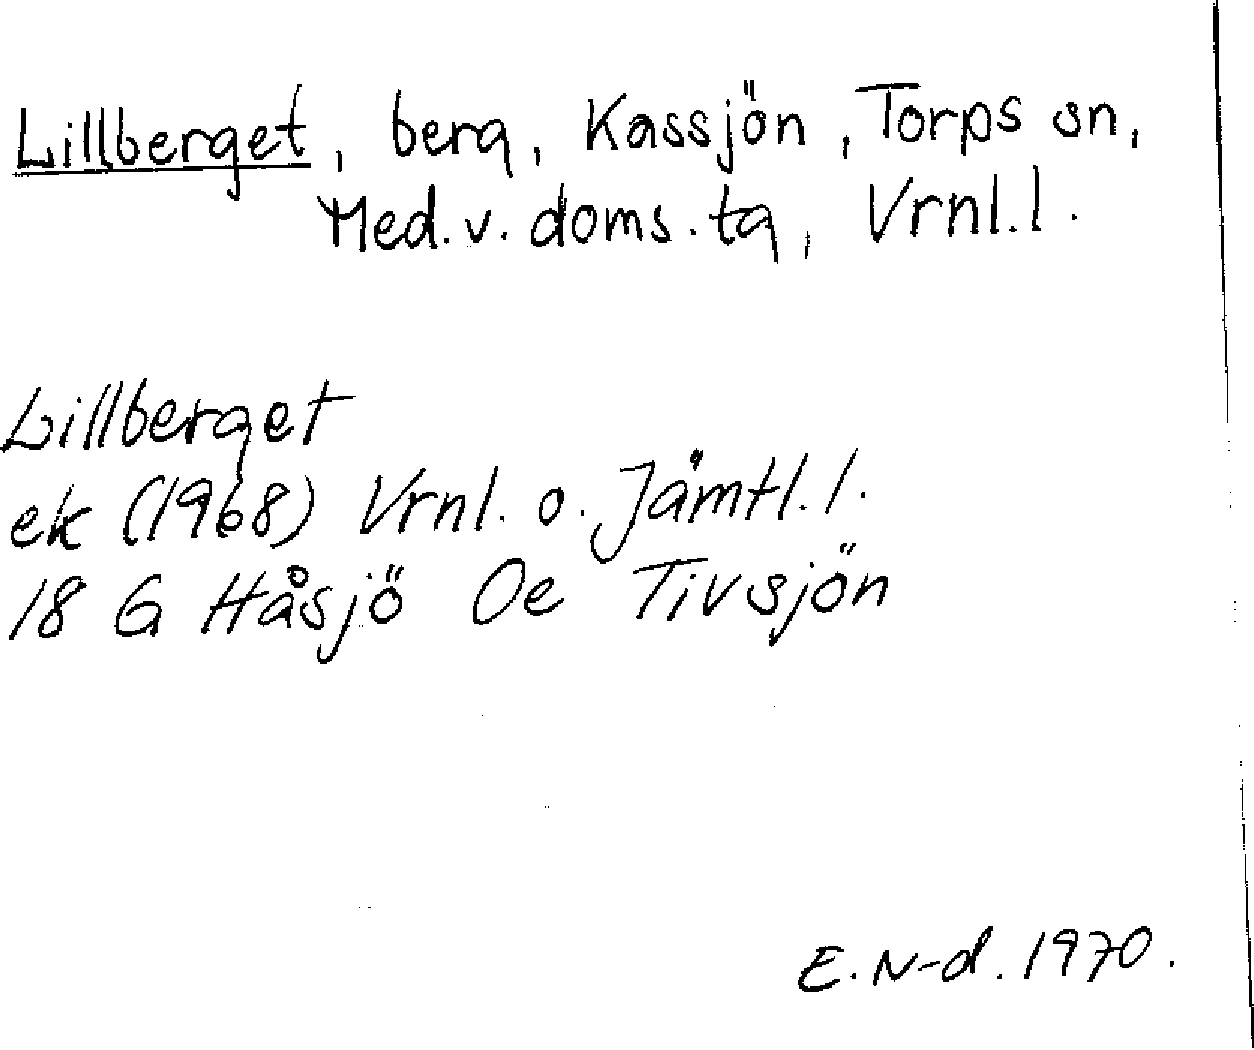 Lillberget, berg, Kassjön, Torps sn,
Med. v. doms. tg, Vrnl. l.
Lillberget
ek (1968) Vrnl. o. Jämtl. l.
18 G Håsjö Oe Tivsjön
E. N-d. 1970.